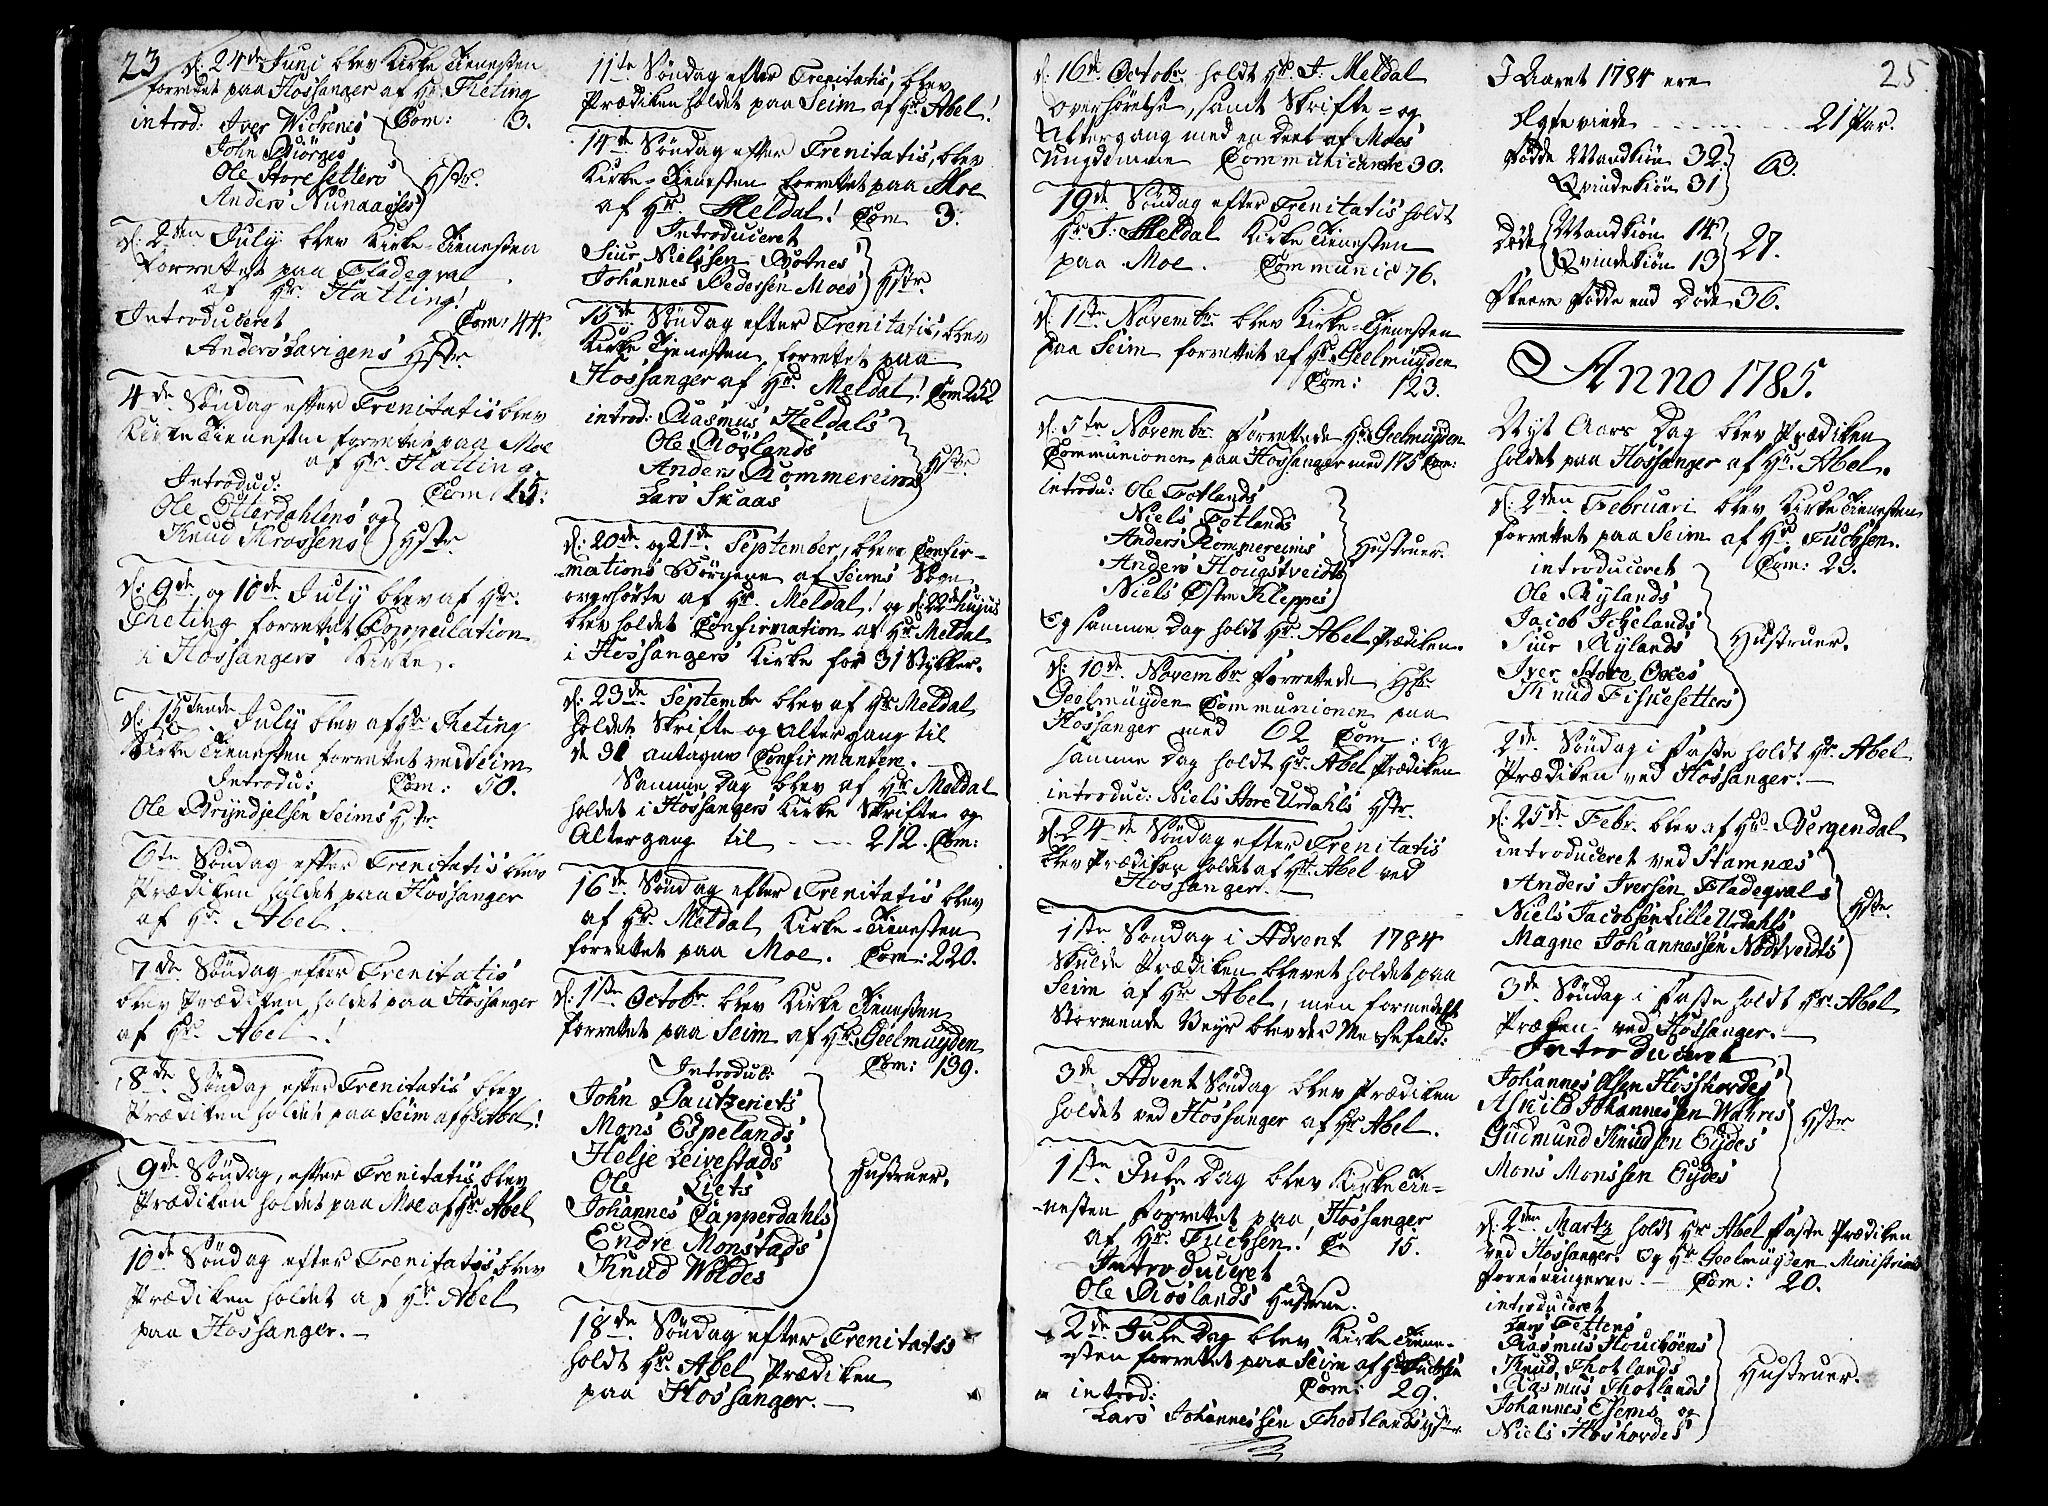 23
d: 24de Junj blev Kirke Tienesten
forrettet paa Hossanger af Hr. Theting
introd: Iver Vichenes Com: 3.
John Biörges
Ole Storesetters Hstr.
Anders Nunaasses
d: 2den July blev Kirke-Tienesten
forrettet paa Fladeqval
af Hr. Hatling!
Introduceret Com: 44.
Anders Lavigens Hstr.
4de Söndag efter Trenitatis blev
Kirke Tienesten forrettet paa Moe
af Hr. Hatling.
Introduc: Com 15:
Ole Otterdahlens og
Knud Krossens Hstr.
d: 9de og 10de July blev af Hr:
Theting forrettet Copulation
i Hossangers Kirke.
d: July blev af Hr Theting
Kirke Tienesten forrettet ved Seim
Introdu: Com: 50.
Ole Bryndjelsen Seims Hstr.
6te Söndag efter Trenitatis blev
Prædiken holdet paa Hossanger
af Hr. Abel.
7de Söndag efter Trenitatis
blev Prædiken holdet paa Hossanger
af Hr. Abel!
8de Söndag efter Trenitatis blev
Prædiken holdet paa Seim af Hr Abel!
9de Söndag, efter Trenitatis, blev
Prædiken holdet paa Moe af Hr. Abel
10de Söndag efter Trenitatis blev
Prædiken holdet af Hr. Abel
paa Hossanger.
11te Söndag efter Trenitatis, blev
Prædiken holdet paa Seim af Hr. Abel!
14de Söndag efter Trenitatis, blev
Kirke-Tienesten forrettet paa Moe
af Hr. Meldal! Com 3.
Introduceret
Siur Nielssen Botnes
Johannes Pedersen Moes Hstr.
15de Söndag efter Trenitatis, blev
Kirke Tienesten, forrettet paa
Hossanger af Hr. Meldal! Com 252
introd: Rasmus Heldals
Ole Röslands
Anders Rommereims Hstr
Lars Skaas
d: 20de og 21de September, bleve Confir-
-mations Börnene af Seims Sogn
overhörte af Hr. Meldal! og d: 22de hujus
blev holdet Confirmation af Hr Meldal
i Hossangers Kirke for 31 Stykker.
d: 23de Septembr blev af Hr Meldal
holdet Skrifte og Altergang til
de 31 antagne Confirmantere.
Samme Dag blev af Hr Meldal
holdet i Hossangers Kirke Skrifte og
Altergang til 212. Com:
16de Söndag efter Trenitatis blev
af Hr. Meldal Kirke-Tienesten
forrettet paa Moe. Com: 220.
d: 1ste Octobr. blev Kirke Tienesten
forrettet paa Seim af Hr. Geelmuyden
Introduc: Com: 139.
John Dautzeriets
Mons Espelands
Helje Leivestads
Ole Liets Hustruer.
Johannes Tapperdahls
Endre Monstads
Knud Woldes
18de Söndag efter Trenitatis
holdt Hr. Abel Prædiken
paa Hossanger.
d: 16de Octobr. holdt Hr. J: Meldal
Overhörelse, samt Skrifte- og
Altergang med en Deel af Moes
Ungdomme Communicantre 30.
19de Söndag efter Trenitatis holdt
Hr. J: Meldal Kirke Tienesten
paa Moe. Communic 76.
d: 1ste Novembr. blev Kirke-Tienesten
paa Seim forrettet af Hr. Geelmuyden
Com: 123.
d: 5te Novembr. forrettede Hr. Geelmuyden
Communionen paa Hossanger med 175 Com:
introdu: Ole Totlands
Niels Totlands
Anders Rommereims Hustruer.
Anders Hougstveidts
Niels Østre Kleppes
Og samme Dag holdt Hr. Abel Prædiken.
d: 10de Novembr forrettede Hr.
Geelmuyden Communionen paa
Hossanger med 62 Com: og
samme Dag holdt Hr. Abel Prædiken
introduc: Niels Store Urdahls Hstr.
d: 24de Söndag efter Trenitatis
blev Prædiken holdet af Hr. Abel ved
Hossanger.
1ste Söndag i Advent 1784
Skulde Prædiken blevet holdet paa
Seim af Hr Abel, men formedelst
Stormende Veyr blev der Messefald:
3de Advent Söndag blev Prædiken
holdet ved Hossanger af Hr Abel.
1ste Jule Dag blev Kirke Tie-
-nesten forrettet paa Hossanger
af Hr. Fuchsen! Co 15.
Introduceret
Ole Röslands Hustrue.
2de Jule Dag blev Kirke Tiene-
sten forrettet paa Seim af Hr Fuchsen
introd: Com: 29.
Lars Johannessen Thodtlands Hstr.
25
I Aaret 1784 ere
Ægteviede 21 Par.
Födde Mandkiön 32.
Qvindekiön 31 63.
Döde Mandkiön 14
Qvindekiön 13 27.
Fleere Födde end Döde 36.
Anno 1785.
Nyt Aars Dag blev Prædiken
holdet paa Hossanger af Hr. Abel.
d: 2den Februari blev Kirke Tienesten
forrettet paa Seim af Hr. Fuchsen.
introduceret Com: 23.
Ole Rylands
Jacob Ichelands
Siur Rylands Hustruer.
Iver Store Okses
Knud Fiskesetters
2de Söndag i Faste holdt Hr. Abel
Prædiken ved Hossanger.
d: 25de Febr. blev af Hr. Bergendal
introduceret ved Stamnæs
Anders Iversen Fladeqvals
Niels Jacobsen Lille Urdahls Hstr.
Magne Johannessen Nödtveidts
3de Söndag i Faste holdt Hr. Abel
Præken ved Hossanger.
Introduceret
Johannes Olsen Hosshordes
Askild Johannessen Wahres
Gudmund Knudsen Eydes Hstr
Mons Monssen Eydes
d: 2den Martz holdt Hr Abel Faste Prædiken
ved Hossanger. Og Hr Geelmuyden Ministrial
Forretningerne. Com: 20.
introduceret
Lars Tettens
Rasmus Houchöens
Knud Thotlands
Rasmus Thotlands Hustruer.
Johannes Esems og
Niels Hoshordes